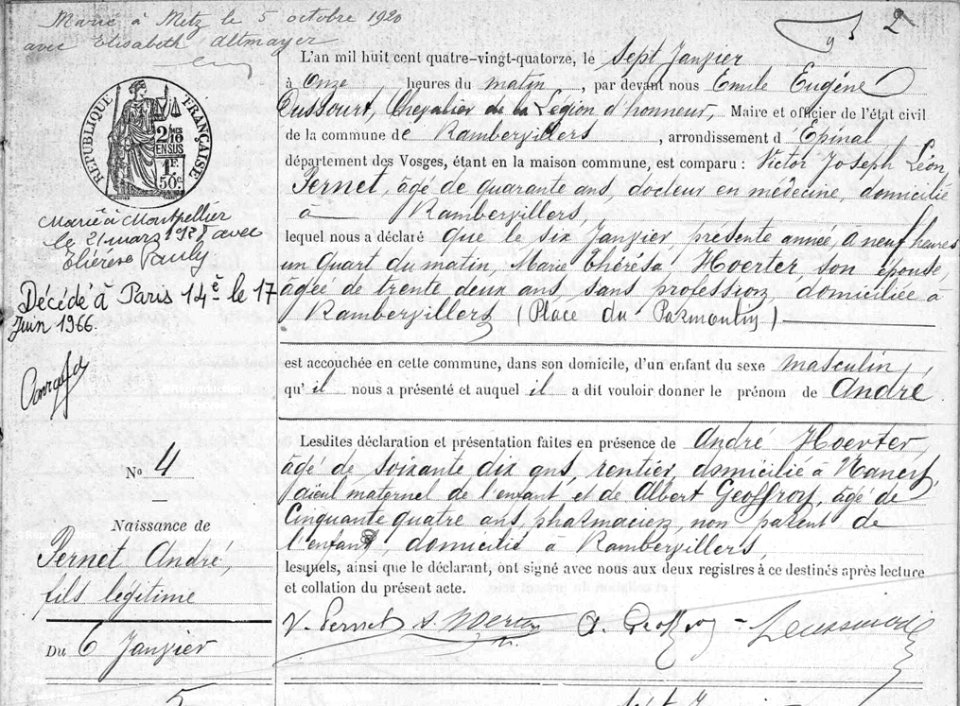 2
Marié à Metz le 5 octobre 1920
avec Elisabeth Altmayer
RÉPUBLIQUE FRANÇAISE
2/10
EN SUS
1F.
50c.
Marié à Montpellier
le 21 mars avec
Thérèse Pauly
Décédé à Paris 14è le 17
Juin 1966.
No 4
Naissance de
Pernet André,
fils légitime
Du 6 Janvier
L'an mil huit cent quatre-vingt-quatorze, le sept Janvier
à onze heures du matin, par devant nous Emile Eugène
Chevalier de la Légion d'honneur, Maire et officier de l'état civil
de la commune de Rambervillers, arrondissement d'Epinal
département des Vosges, étant en la maison commune, est comparu : Victor Joseph Léon
Pernet, âgé de quarante ans, docteur en médecine, domicilié
à Rambervillers,
lequel nous a déclaré que le six Janvier présente année, à neuf heures
un quart du matin, Marie Thérésa Hoerter, son épouse
âgée de trente deux ans, sans profession, domiciliée à
Rambervillers (Place du )
est accouchée en cette commune, dans son domicile, d'un enfant du sexe masculin
qu'il nous a présenté et auquel il a dit vouloir donner le prénom de André
Lesdites déclaration et présentation faites en présence de André Hoerter,
âgé de soixante dix ans, rentier, domicilié à Nancy,
aïeul maternel de l'enfant et de Albert Geoffroy, âgé de
cinquante quatre ans, pharmacien, non parent de
l'enfant, domicilié à Rambervillers,
lesquels, ainsi que le déclarant, ont signé avec nous aux deux registres à ce destinés après lecture
et collation du présent acte.
V. Pernet